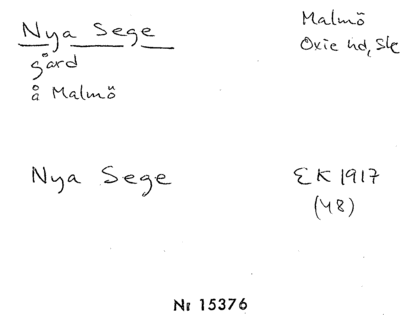 Nya Sege
Malmö
gård
Oxie hd, Sk
å Malmö
Nya Sege
EK 1917
(48)
Nr 15376